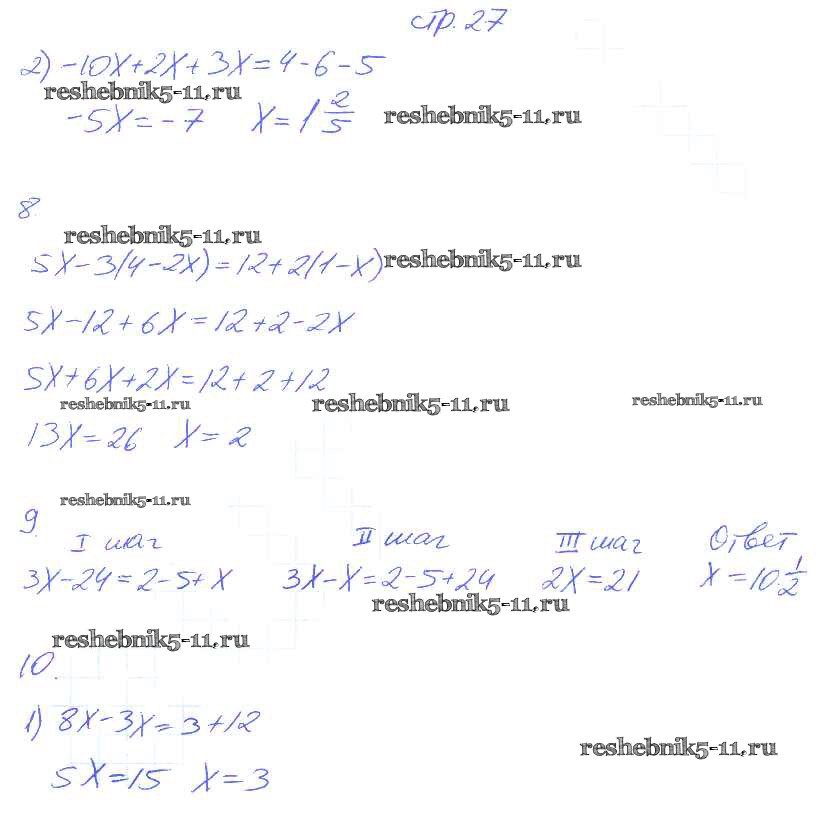 стр. 27
2) -10x+2x+3x=4-6-5
reshebnik5-11.ru
-5x=-7 x=1 2/5 reshebnik5-11.ru
8.
reshebnik5-11.ru
5x-3(4-2x)=12+2(1-x) reshebnik5-11.ru
5x-12+6x=12+2-2x
5x+6x+2x=12+2+12
reshebnik5-11.ru reshebnik5-11.ru reshebnik5-11.ru
13x=26 x=2
reshebnik5-11.ru
9.
I шаг II шаг III шаг Ответ
3x-24=2-5+x 3x-x=2-5+24 2x=21 x=10 1/2
reshebnik5-11.ru
reshebnik5-11.ru
10.
1) 8x-3x=3+12
reshebnik5-11.ru
5x=15 x=3